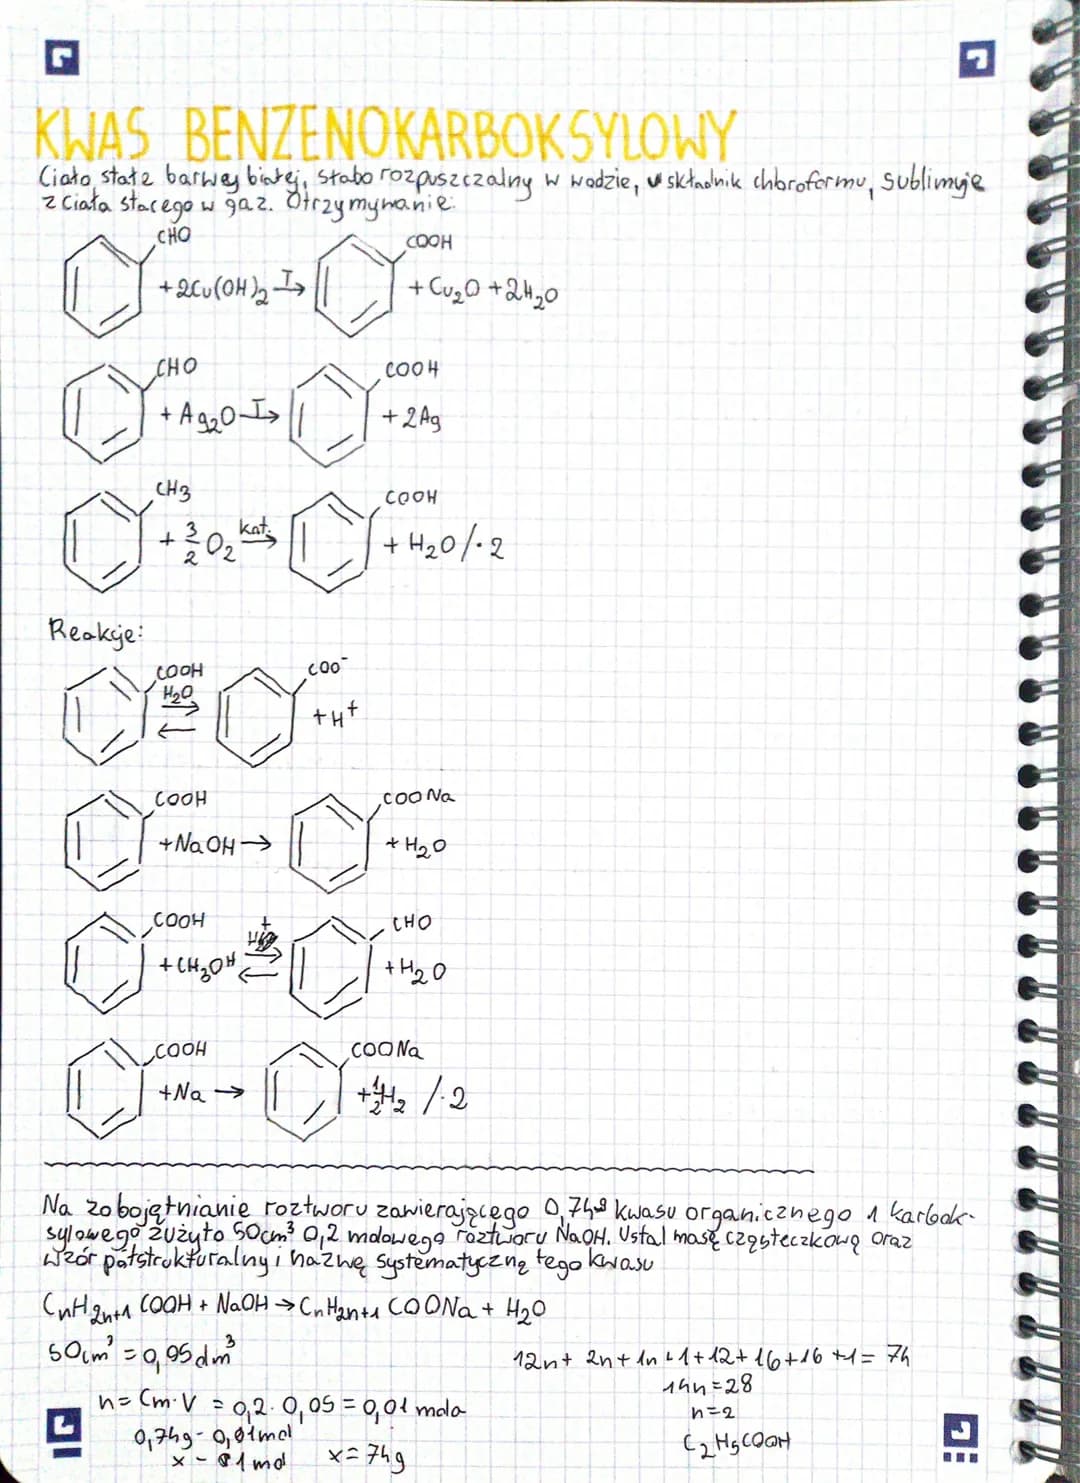 KWAS BENZENOKARBOKSYLOWY
Ciało stałe barwy białej, słabo rozpuszczalny w wodzie, składnik chloroformu, sublimuje
z ciała stałego w gaz. Otrzymywanie:
CHO + 2Cu(OH)₂ T→ COOH + Cu₂O + 2H₂O
CHO + Ag₂O T→ COOH + 2Ag
CH3 + 3/2 O₂ kat.→ COOH + H₂O /·2
Reakcje:
COOH H₂O ⇄ COO⁻ + H⁺
COOH + NaOH → COONa + H₂O
COOH + CH₃OH H⁺ ⇄ CHO + H₂O
COOH + Na → COONa + 1/2 H₂ /·2
Na zobojętnianie roztworu zawierającego 0,74g kwasu organicznego 1 karbok-
sylowego zużyto 50cm³ 0,2 molowego roztworu NaOH. Ustal masę cząsteczkową oraz
wzór półstrukturalny i nazwę systematyczną tego kwasu
CnH2n+1 COOH + NaOH → CnH2n+1 COONa + H₂O
50cm³ = 0,05dm³
n = Cm·V = 0,2·0,05 = 0,01 mola
0,74g - 0,01mol
x - 1mol x = 74g
12n + 2n + 1 + 12 + 16 + 16 + 1 = 74
14n = 28
n = 2
C₂H₅COOH